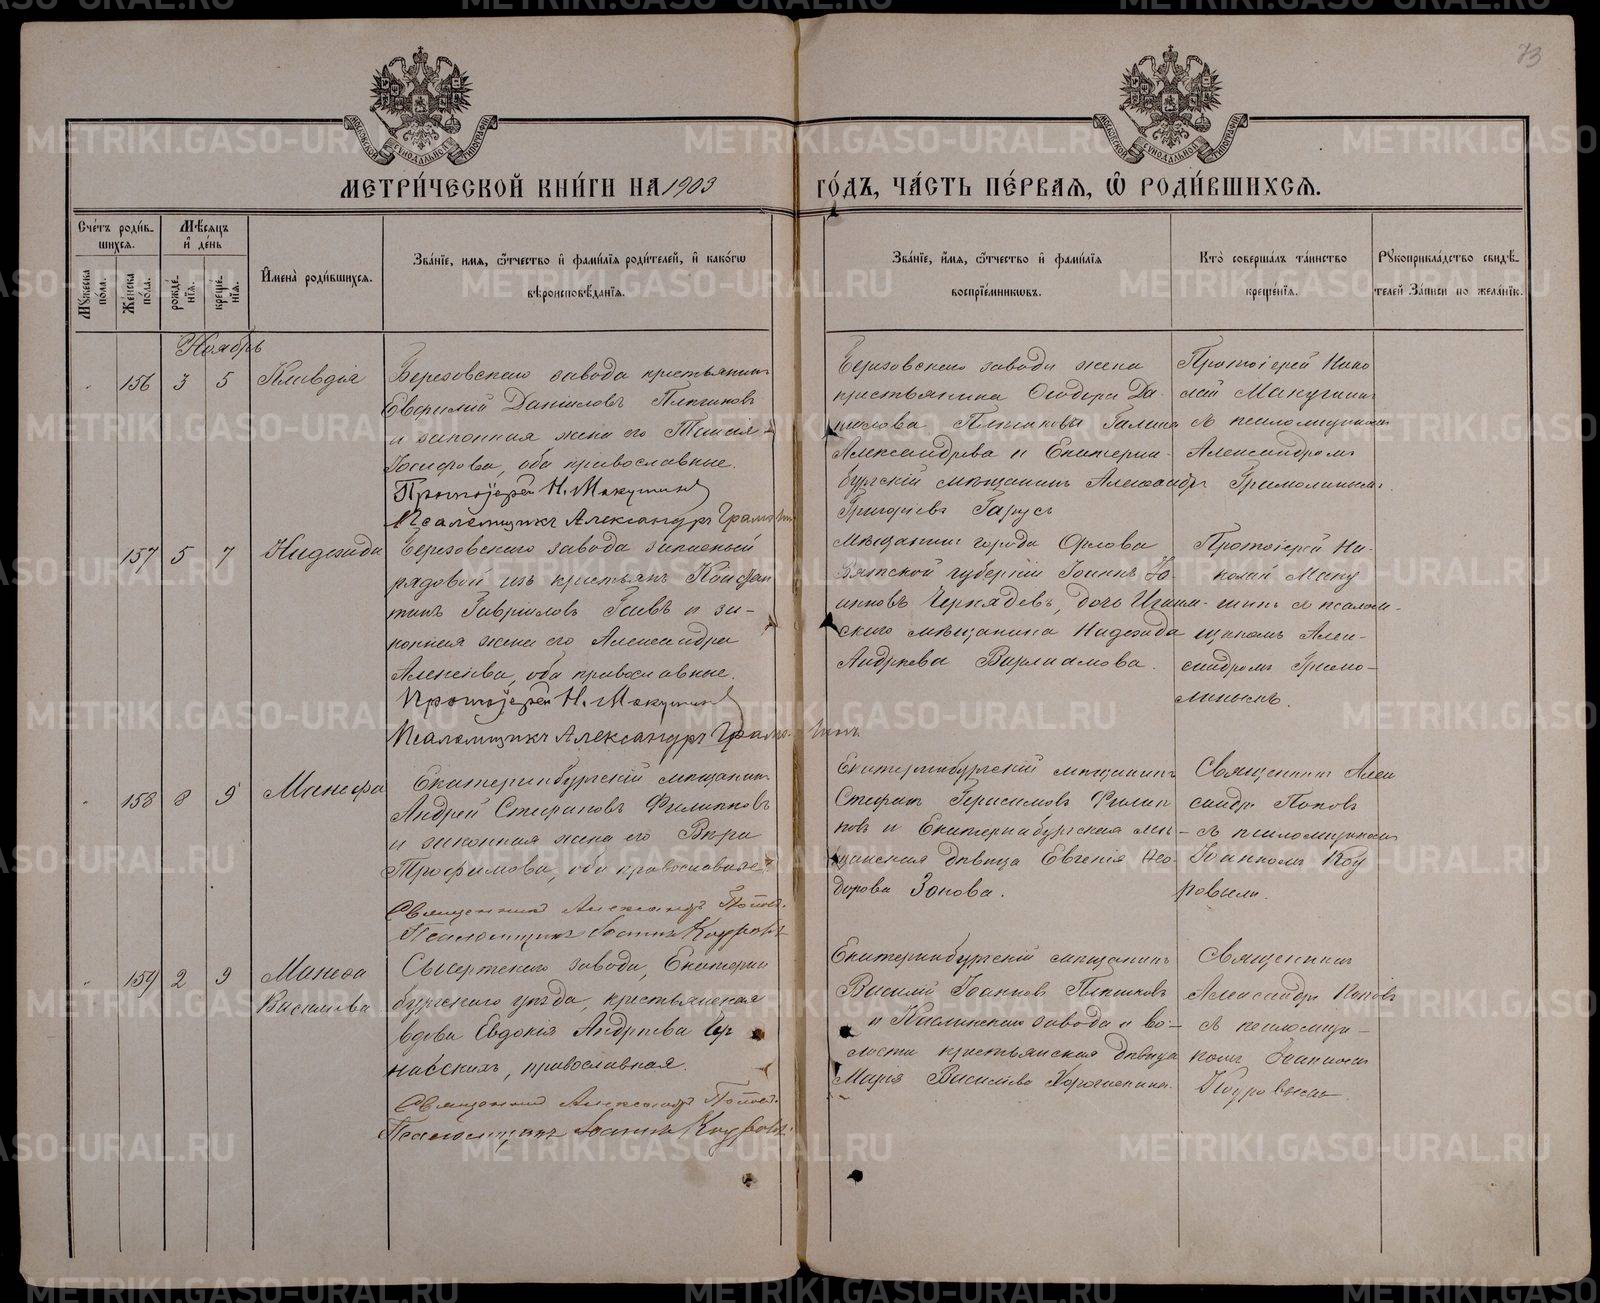 73
МЕТРИ́ЧЕСКОЙ КНИ́ГИ НА 1903
ГО́ДЪ, ЧА́СТЬ ПЕ́РВАЯ, Ѡ РОДИ́ВШИХСЯ.
Сче́тъ роди́в-
шихся.
Мѣ́сяцъ
и де́нь
Му́жеска по́ла.
Же́нска по́ла.
рожде́-
нїя.
креще́-
нїя.
Имена̀ роди́вшихся.
Зва́нїе, имя, ѿчество и фами́лїя роди́телей, и како́гѡ
вѣроисповѣ́данїя.
Зва́нїе, и́мя, ѿчество и фами́лїя
воспрїе́мникѡвъ.
Кто̀ соверша́лъ та́инство
креще́нїя.
Рукоприкла́дство свидѣ́-
телей за́писи по жела́нїю.
Ноябрь
156 3 5 Клавдія
Березовскаго завода крестьянинъ
Данииловъ
и законная жена его Таисія
Іосифова, оба православные.
Протоіерей Н. Макушинъ
Псаломщикъ Александръ
Березовскаго завода жена
крестьянина Ѳеодора Да-
нилова Галина
Александрова и Екатерин-
бургскій мѣщанинъ Александръ
Григорьевъ Гарусъ
Протоіерей Нико
лай Макушинъ
съ псаломщикомъ
Александромъ
157 5 7 Надежда
Березовскаго завода запасный
рядовой изъ крестьянъ Констан
тинъ Гавріиловъ и за-
конная жена его Александра
Алексѣева, оба православные.
Протоіерей Н. Макушинъ
Псаломщикъ Александръ
Мѣщанинъ города Орлова
Вятской губерніи Іоаннъ Іо-
анновъ дочь Ишим-
скаго мѣщанина Надежда
Андреева Варламова.
Протоіерей Ни-
колай Маку
шинъ съ псалом-
щикомъ Алек-
сандромъ
158 8 9 Манефа
Екатеринбургскій мѣщанинъ
Андрей Стефановъ Филипповъ
и законная жена его Вѣра
Трофимова, оба православные.
Священникъ Александръ Поповъ.
Псаломщикъ Іоаннъ Коуровъ
Екатеринбургскій мѣщанинъ
Стефанъ Герасимовъ Филип
повъ и Екатеринбургская мѣ-
щанская дѣвица Евгенія Ѳео-
дорова Зотова.
Священникъ Алек
сандръ Поповъ
съ псаломщикомъ
Іоанномъ Коу
ровымъ.
159 2 9 Манефа
Васильева
Сысертскаго завода, Екатерин
бургскаго уѣзда, крестьянская
вдова Евдокія Андреева
православная.
Священникъ Александръ Поповъ.
Псаломщикъ Іоаннъ Коуровъ
Екатеринбургскій мѣщанинъ
Василій Іоанновъ
и Каслинскаго завода и во-
лости крестьянская дѣвица
Марія Васильева
Священникъ
Александръ Поповъ
съ псаломщи-
комъ Іоанномъ
Коуровымъ.
METRIKI.GASO-URAL.RU